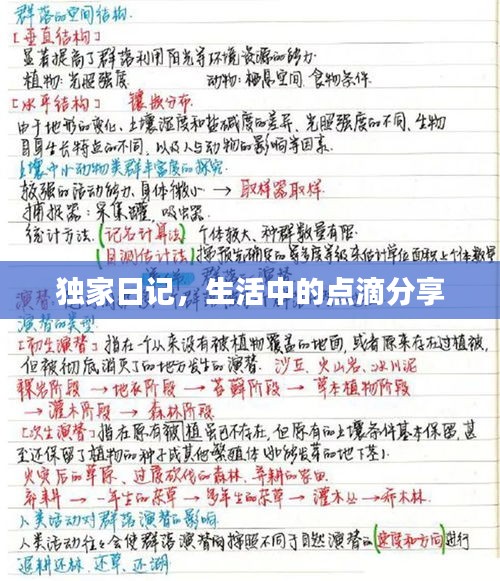 群落的空间结构
[垂直结构]
显著提高了群落利用阳光等环境资源的能力
植物:光照强度 动物:栖息空间、食物条件
[水平结构] 镶嵌分布
由于地形的变化、土壤湿度和盐碱度的差异、光照强度的不同、生物
自身生长特点的不同,以及人与动物的影响等因素.
土壤中小动物类群丰富度的探究
较强的活动能力、身体微小 → 取样器取样
捕捉器:采集罐,吸虫器.
统计方法 (记名计算法) 个体较大、种群数量有限.
(目测估计法) 按预先确定的多度等级来估计单位面积上个体数量
独家日记,生活中的点滴分享
演替的类型
[初生演替] 指在一个从来没有被植物覆盖的地面,或者原来存在过植被,
但被彻底消灭了的地方发生的演替. 沙丘、火山岩、冰川泥
裸岩阶段 → 地衣阶段 → 苔藓阶段 → 草本植物阶段
→ 灌木阶段 → 森林阶段
[次生演替] 指在原有被植虽已不存在,但原有的土壤条件基本保留,甚
至还保留了植物的种子或其他繁殖体(如能发芽的地下茎).
火灾后的草原、过度砍伐的森林、弃耕的农田.
弃耕 → 一年生的杂草 → 多年生的杂草 → 灌木丛 → 乔木林.
人类活动对群落演替的影响.
人类活动往往会使群落演替按照不同于自然演替的(速度和方向)进行
退耕还林、还草、还湖